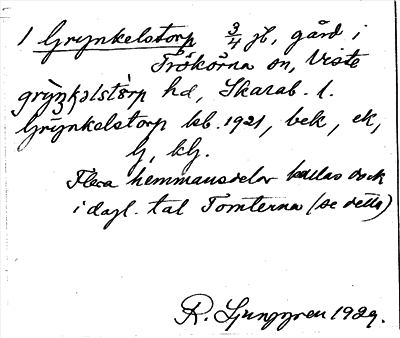 1 Grynkelstorp 3/4 jb, gård i
Trökörna sn, Viste
grỳŋkəlstàrp hd, Skarab. l.
Grynkelstorp leb. 1921, bek, ek,
lj, klj.
Flera hemmansdelar kallas dock
i dagl. tal Tomterna (se detta)
R. Ljunggren 1929.